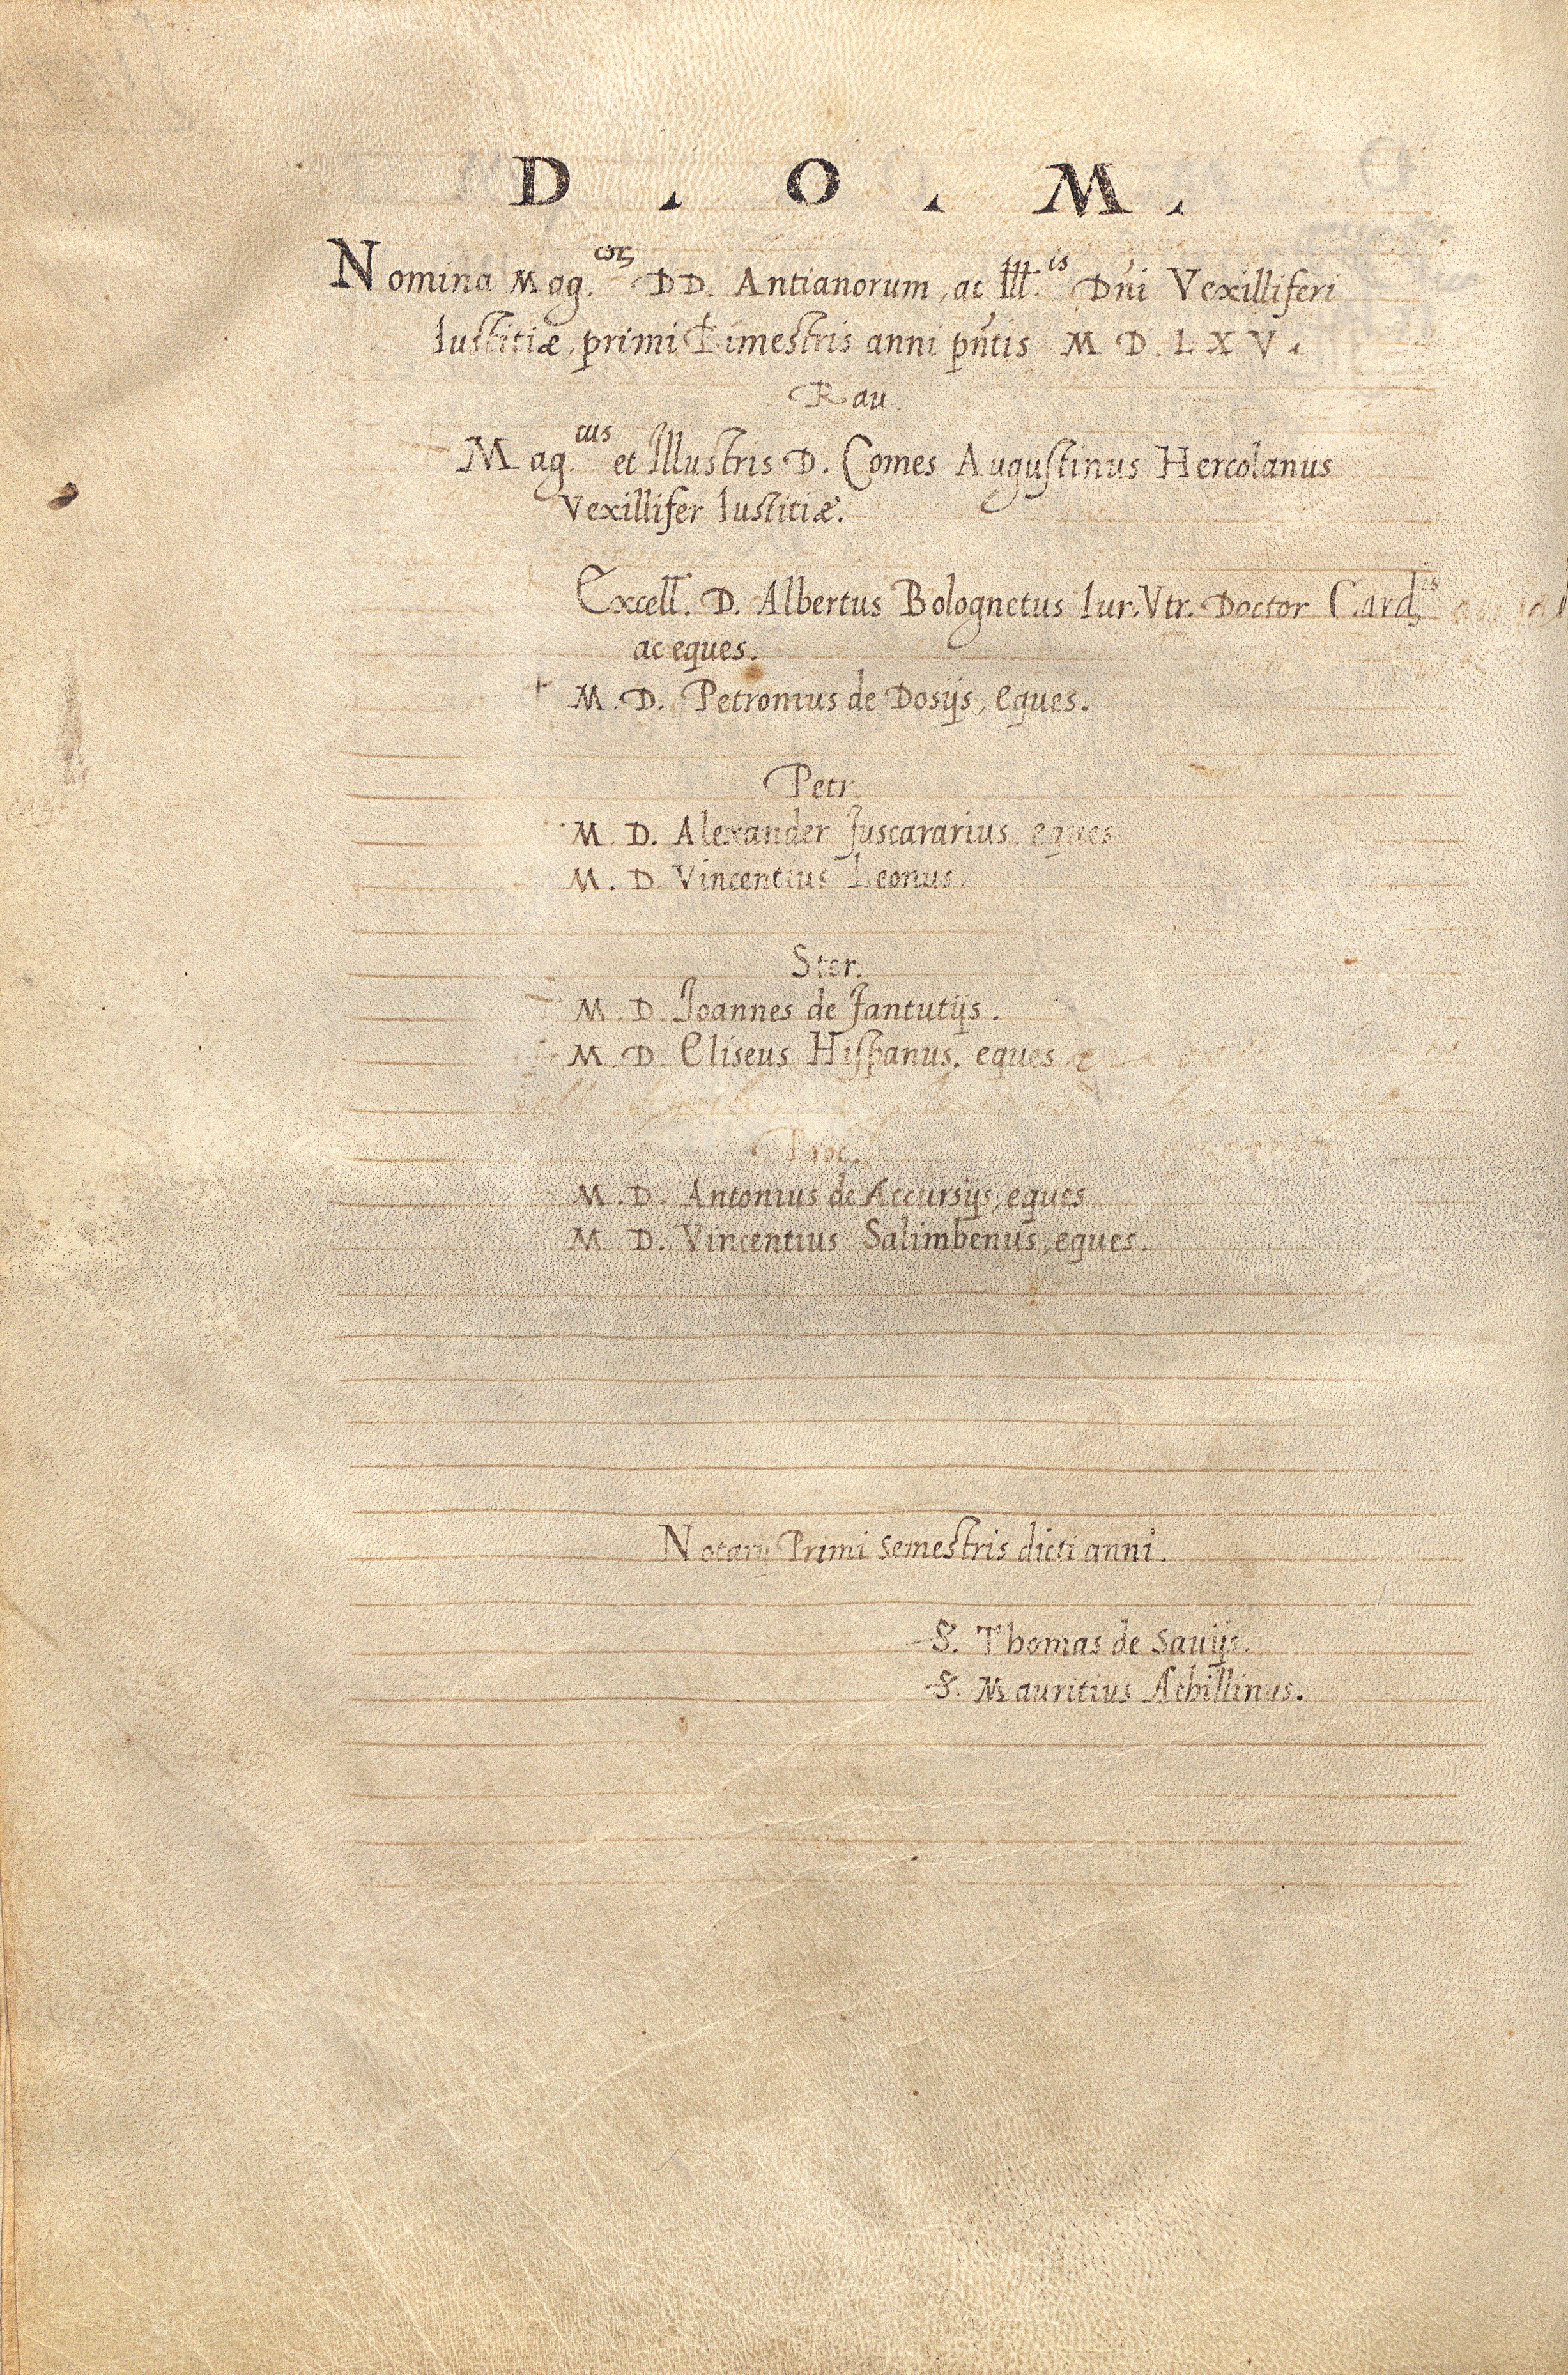 D . O . M .
Nomina Mag.corꝝ DD. Antianorum, ac Ill.is Dn̄i Vexilliferi
Iustitiæ, primi Bimestris anni pn̄tis M D L X V .
Rau.
Mag.cus et Illustris D. Comes Augustinus Hercolanus
Vexillifer Iustitiæ.
Excell. D. Albertus Bolognetus Iur. Vtr. Doctor Card.is
ac eques.
M. D. Petronius de Dosijs, eques.
Petr.
M. D. Alexander Fuscararius, eques
M. D. Vincentius Leonus.
Ster.
M. D. Ioannes de Fantutijs.
M. D. Eliseus Hispanus. eques
Proc.
M. D. Antonius de Accursijs, eques
M D. Vincentius Salimbenus, eques.
Notarij Primi semestris dicti anni.
S. Thomas de Sauijs.
S. Mauritius Achillinus.